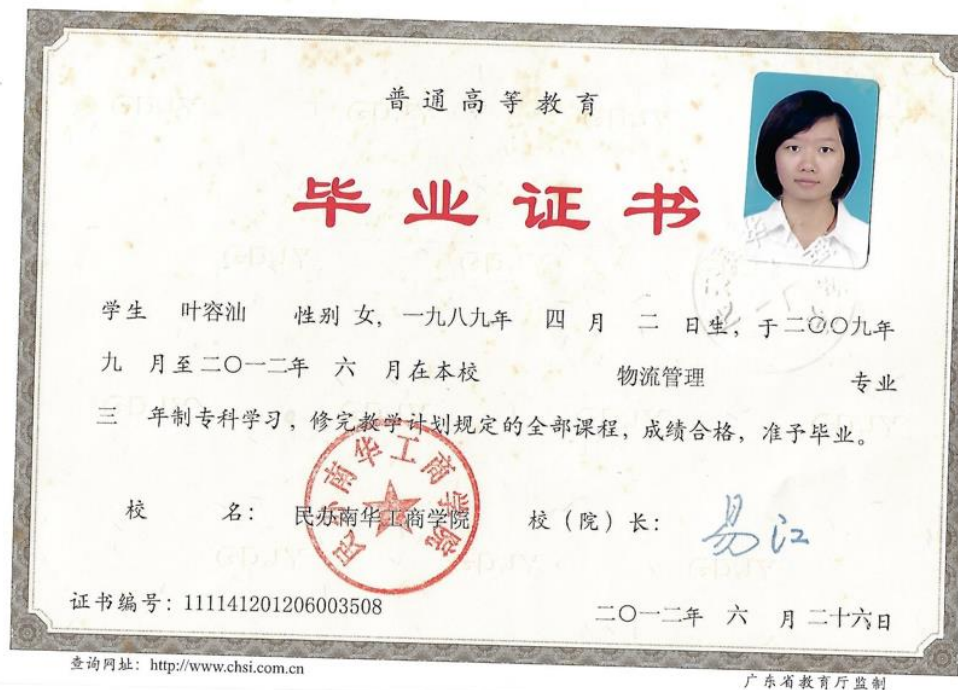 普通高等教育
毕业证书
学生 叶容汕 性别 女，一九八九年 四 月 二 日生，于二〇〇九年
九 月至二〇一二年 六 月在本校 物流管理 专业
三 年制专科学习，修完教学计划规定的全部课程，成绩合格，准予毕业。
校 名： 民办南华工商学院 校（院）长： 易江
民办南华工商学院
证书编号：111141201206003508 二〇一二年 六 月 二十六日
查询网址：http://www.chsi.com.cn 广东省教育厅监制